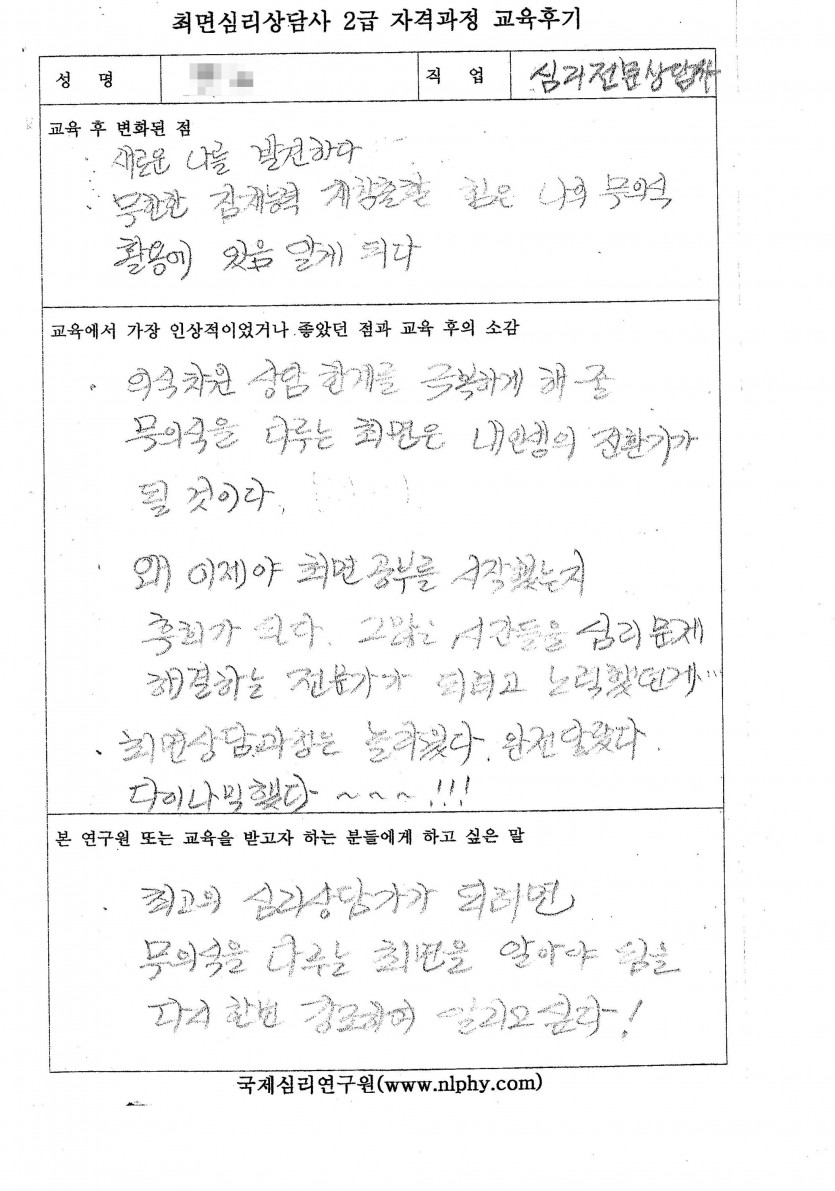 최면심리상담사 2급 자격과정 교육후기
성 명
직 업
심리전문상담사
교육 후 변화된 점
새로운 나를 발견하다
무한한 잠재능력 개창출할 힘은 나의 무의식
활용에 있음 알게 되다
교육에서 가장 인상적이었거나 좋았던 점과 교육 후의 소감
의식차원 상담 한계를 극복하게 해 줄
무의식을 다루는 최면은 내인생의 전환기가
될 것이다.
왜 이제야 최면공부를 시작했는지
후회가 된다. 그많은 시간들을 심리 문제
해결하는 전문가가 되려고 노력했던게...
최면상담과정은 놀라웠다. 완전달랐다.
다이나믹했다~~~!!!
본 연구원 또는 교육을 받고자 하는 분들에게 하고 싶은 말
최고의 심리상담가가 되려면
무의식을 다루는 최면을 알아야 됨을
다시 한번 강조하여 알리고 싶다!
국제심리연구원(www.nlphy.com)